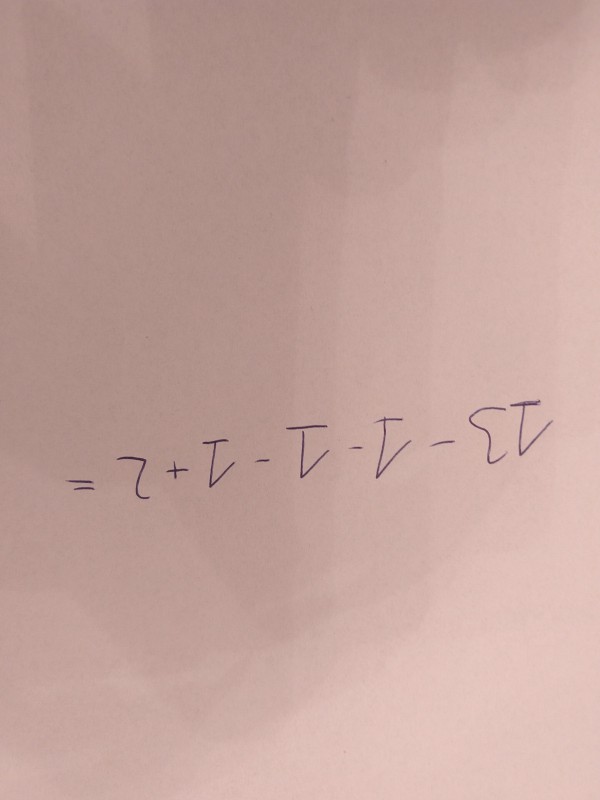 13 - 1 - 1 - 1 + 2 =